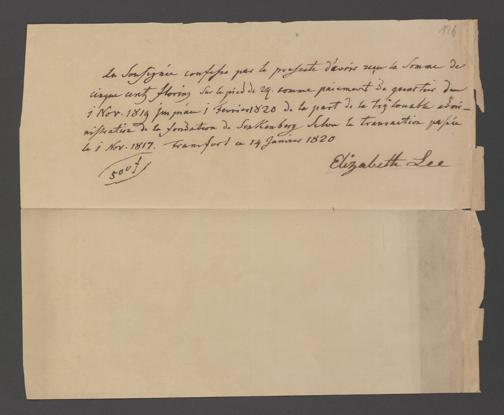 176
La Soussignée confesse par la presente d'avoir reçu la Somme de
cinque cents florins sur le pied de 24. comme paiement de quartier du
1 Nov. 1819 jusqu'au 1 fevrier 1820 de la part de la très louable admi-
nistration de la fondation de Senkenberg selon la transaction passée
le 1 Nov. 1817. Francfort ce 14 Janvier 1820
500 f
Elizabeth Lee